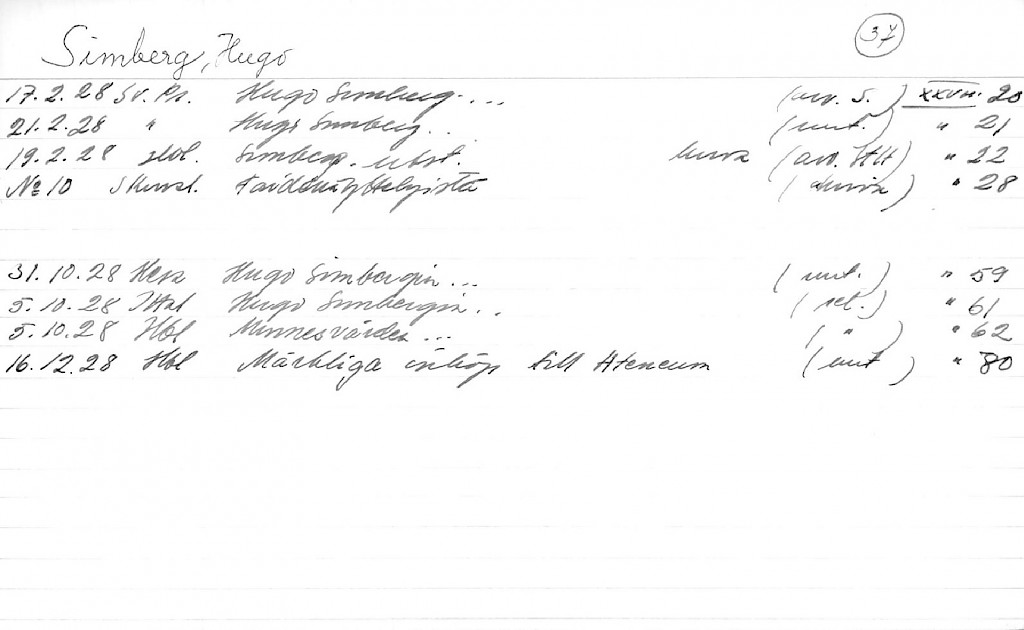 Simberg, Hugo 37
17.2.28 Sv. Pr. Hugo Simberg... (arv. S.) XXVIII. 20
21.2.28 " Hugo Simberg.. (uut.) " 21
19.2.28 Hbl. Simberg. utst. (arv. ) " 22
№ 10 Taidenäyttelyistä ( ) " 28
31.10.28 Hugo Simbergin... (uut.) " 59
5.10.28 Hugo Simbergin.. (sel.) " 61
5.10.28 Hbl Minnesvärden... ( " ) " 62
16.12.28 Hbl Märkliga inköp till Ateneum (uut) " 80